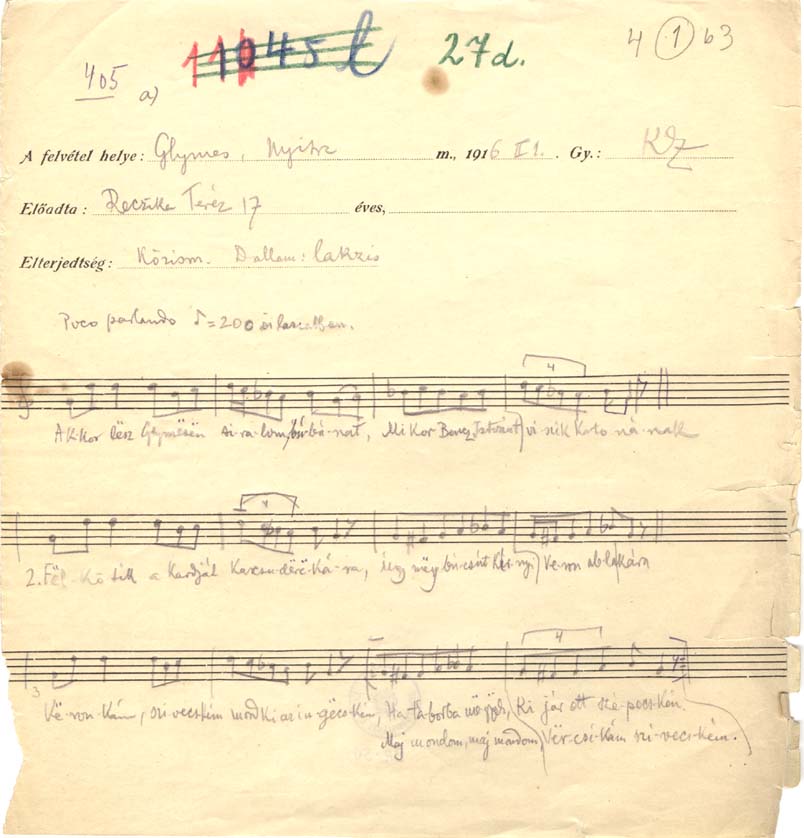 405 a) 1045 l 27d. 4 1 63
A felvétel helye: Ghymes, Nyitra m., 1916 II 1. Gy.: KZ
Előadta: Reczika Teréz 17 éves,
Elterjedtség: Közism. Dallam: lakzis
Poco parlando ♪=200
4
Akkor lësz Ghymësën si-ra-lom, bú-bá-nat, Mikor Bencz Istvánt vi-szik Kato-ná-nak
4
2. Fël-kö-tik a Kardját Karcsu dërë-ká-ra, Úgy mëgy bú-csút Kér-nyi Ve-ron ablakára
3
4
Vë-ron-kám, szi-vecském mond ki az in-gëcs-kém, Ha tá-borba Ki jár ott szë-pecs-kén.
Maj mondom, maj mondom, Vër-csi-kám szi-vecs-kém.